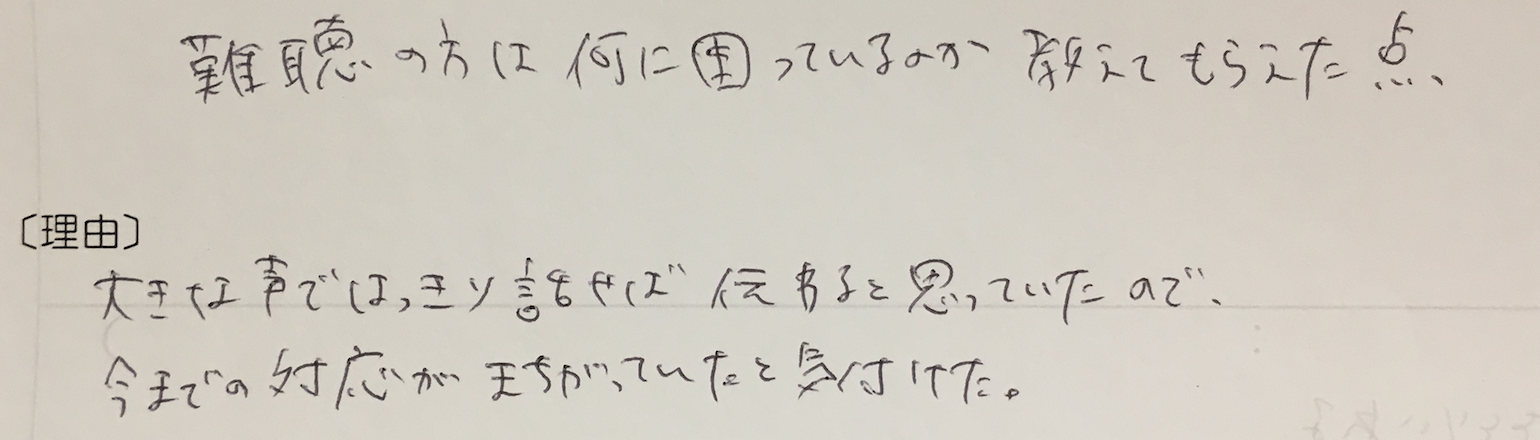 難聴の方は何に困っているのか教えてもらえた点、
〔理由〕
大きな声ではっきり話せば伝わると思っていたので、
今までの対応がまちがっていたと気付けた。